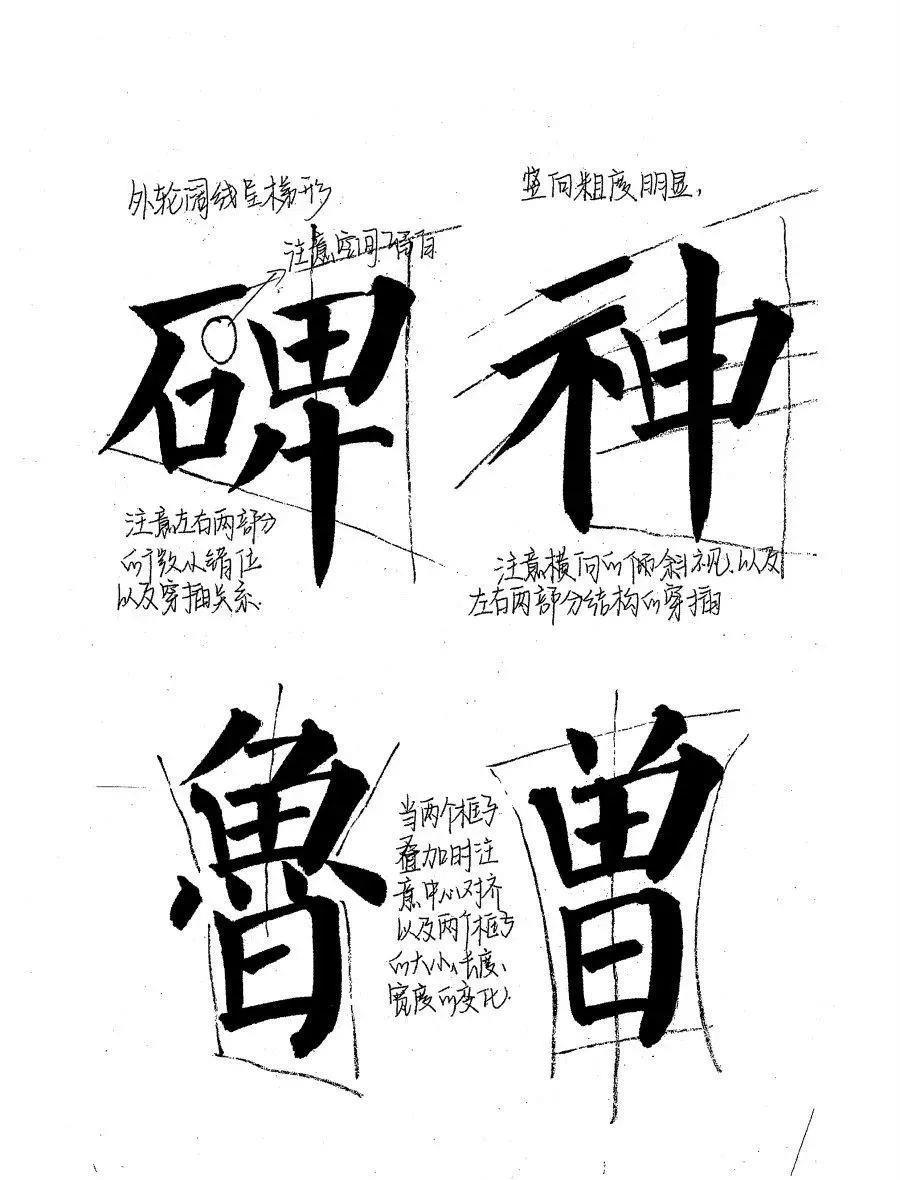 外轮阔线呈梯形
注意空间留白
碑
注意左右两部分
的大小错位
以及穿插关系.
竖向粗度明显,
神
注意横向的倾斜视以及
左右两部分结构的穿插
魯
当两个框子
叠加时注
意中心对挤
以及两个框子
的大小、长度、
宽度的变化.
曾